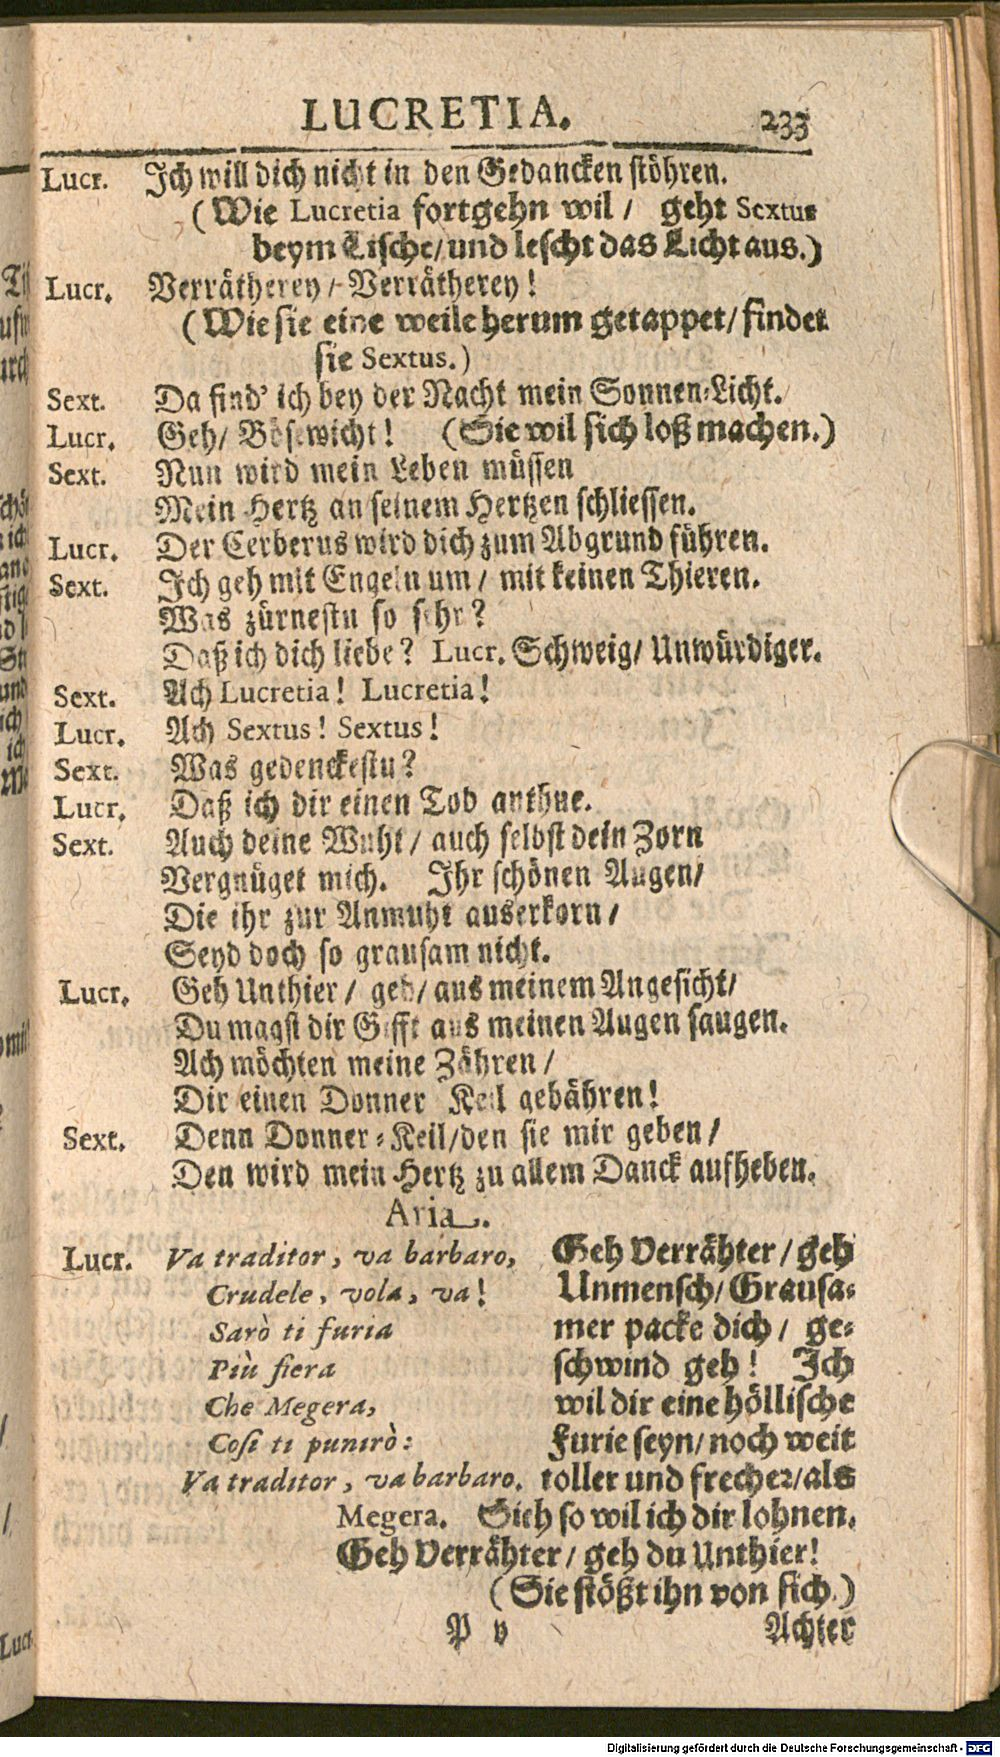 LUCRETIA. 233
Lucr. Ich will dich nicht in den Gedancken stöhren.
(Wie Lucretia fortgehn wil / geht Sextus
beym Tische/ und lescht das Licht aus.)
Lucr. Verrätherey / Verrätherey!
(Wie sie eine weile herum getappet/ findet
sie Sextus.)
Sext. Da find' ich bey der Nacht mein Sonnen-Licht.
Lucr. Geh/ Bösewicht! (Sie wil sich loß machen.)
Sext. Nun wird mein Leben müssen
Mein Hertz an seinem Hertzen schliessen.
Lucr. Der Cerberus wird dich zum Abgrund führen.
Sext. Ich geh mit Engeln um / mit keinen Thieren.
Was zürnestu so sehr?
Daß ich dich liebe? Lucr. Schweig/ Unwürdiger.
Sext. Ach Lucretia! Lucretia!
Lucr. Ach Sextus! Sextus!
Sext. Was gedenckestu?
Lucr. Daß ich dir einen Tod anthue.
Sext. Auch deine Wuht / auch selbst dein Zorn
Vergnüget mich. Ihr schönen Augen/
Die ihr zur Anmuht auserkorn /
Seyd doch so grausam nicht.
Lucr. Geh Unthier / geh/ aus meinem Angesicht/
Du magst dir Gifft aus meinen Augen saugen.
Ach möchten meine Zähren /
Dir einen Donner Keil gebähren!
Sext. Denn Donner-Keil/ den sie mir geben /
Den wird mein Hertz zu allem Danck aufheben.
Aria.
Lucr. Va traditor, va barbaro,
Crudele, vola, va!
Sarò ti furia
Più fiera
Che Megera,
Cosi ti punirò:
Va traditor, va barbaro.
Geh Verrähter / geh
Unmensch/ Grausa-
mer packe dich / ge-
schwind geh! Ich
wil dir eine höllische
Furie seyn/ noch weit
toller und frecher/ als
Megera. Sieh so wil ich dir lohnen.
Geh Verrähter / geh du Unthier!
(Sie stößt ihn von sich.)
P v Achter
Digitalisierung gefördert durch die Deutsche Forschungsgemeinschaft - DFG